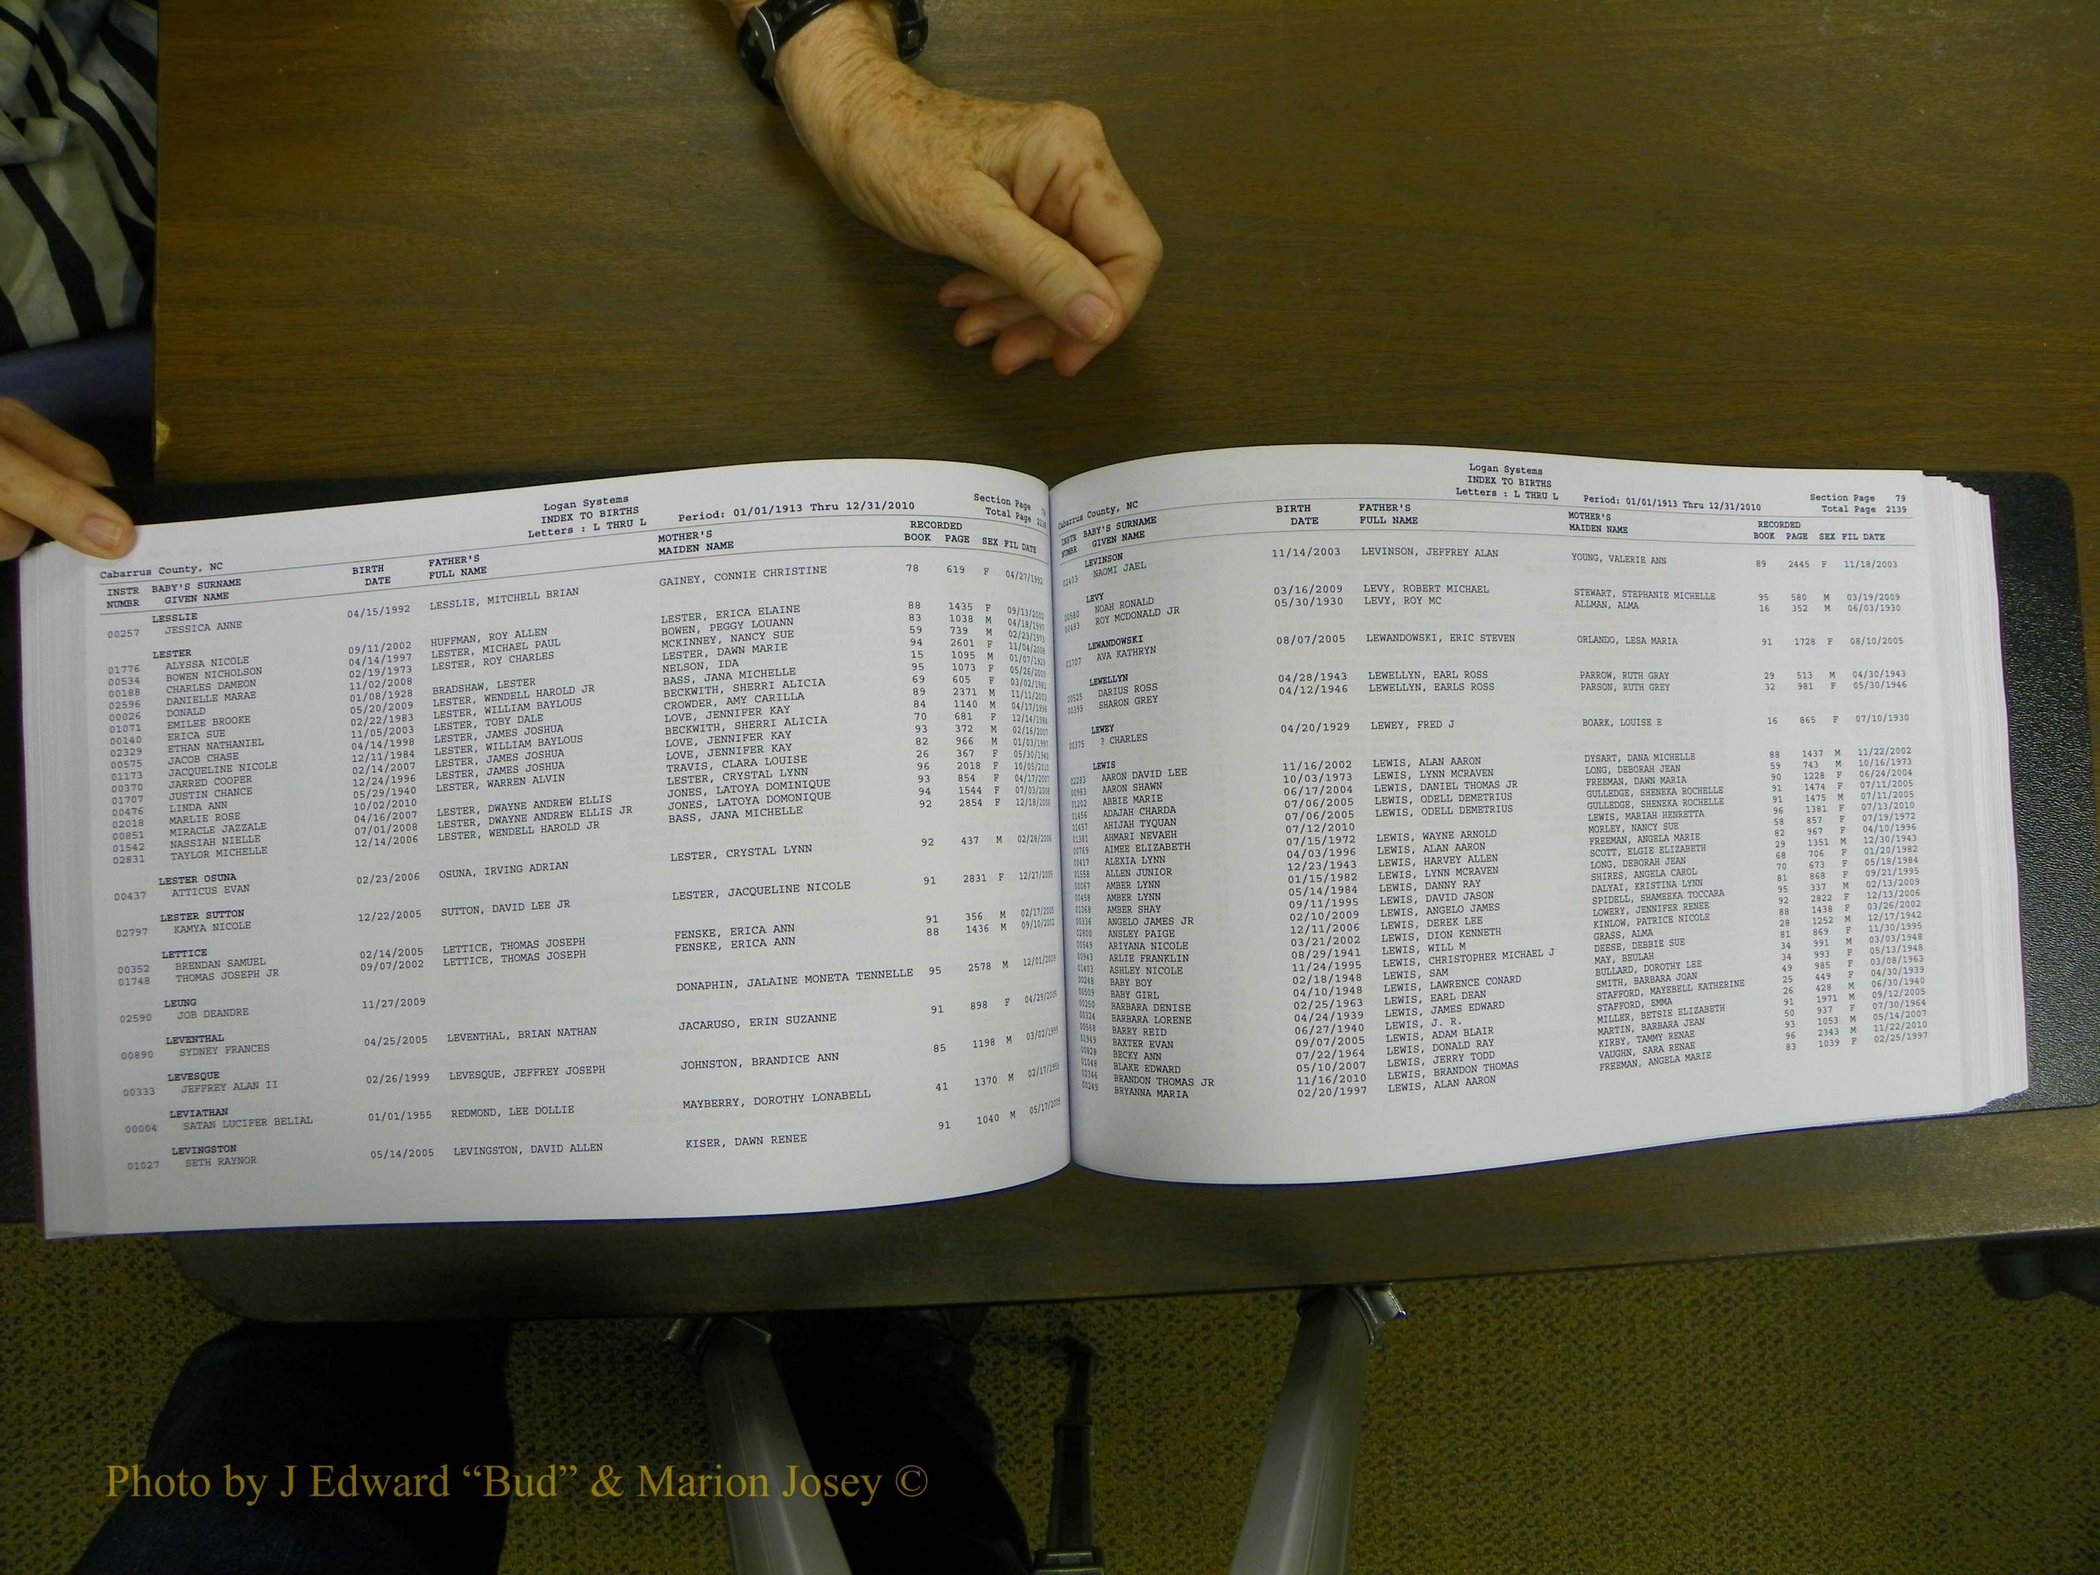 Logan Systems
INDEX TO BIRTHS
Letters : L THRU L Period: 01/01/1913 Thru 12/31/2010
Section Page
Total Page 2139
Cabarrus County, NC
INSTR BABY'S SURNAME BIRTH FATHER'S MOTHER'S RECORDED
NUMBR GIVEN NAME DATE FULL NAME MAIDEN NAME BOOK PAGE SEX FIL DATE
LESSLIE
00257 JESSICA ANNE 04/15/1992 LESSLIE, MITCHELL BRIAN GAINEY, CONNIE CHRISTINE 78 619 F 04/27/1992
LESTER
01776 ALYSSA NICOLE 09/11/2002 HUFFMAN, ROY ALLEN LESTER, ERICA ELAINE 88 1435 F 09/13/2002
00534 BOWEN NICHOLSON 04/14/1997 LESTER, MICHAEL PAUL BOWEN, PEGGY LOUANN 83 1038 M 04/18/1997
00188 CHARLES DAMEON 02/19/1973 LESTER, ROY CHARLES MCKINNEY, NANCY SUE 59 739 M 02/23/1973
02596 DANIELLE MARAE 11/02/2008 LESTER, DAWN MARIE 94 2601 F 11/04/2008
00026 DONALD 01/08/1928 BRADSHAW, LESTER NELSON, IDA 15 1095 M 01/07/1929
01071 EMILEE BROOKE 05/20/2009 LESTER, WENDELL HAROLD JR BASS, JANA MICHELLE 95 1073 F 05/26/2009
00140 ERICA SUE 02/22/1983 LESTER, WILLIAM BAYLOUS BECKWITH, SHERRI ALICIA 69 605 F 03/02/1983
02329 ETHAN NATHANIEL 11/05/2003 LESTER, TOBY DALE CROWDER, AMY CARILLA 89 2371 M 11/11/2003
00575 JACOB CHASE 04/14/1998 LESTER, JAMES JOSHUA LOVE, JENNIFER KAY 84 1140 M 04/17/1998
01173 JACQUELINE NICOLE 12/11/1984 LESTER, WILLIAM BAYLOUS BECKWITH, SHERRI ALICIA 70 681 F 12/14/1984
00370 JARRED COOPER 02/14/2007 LESTER, JAMES JOSHUA LOVE, JENNIFER KAY 93 372 M 02/16/2007
01707 JUSTIN CHANCE 12/24/1996 LESTER, JAMES JOSHUA LOVE, JENNIFER KAY 82 966 M 01/03/1997
00476 LINDA ANN 05/29/1940 LESTER, WARREN ALVIN TRAVIS, CLARA LOUISE 26 367 F 05/30/1940
02018 MARLIE ROSE 10/02/2010 LESTER, CRYSTAL LYNN 96 2018 F 10/05/2010
00851 MIRACLE JAZZALE 04/16/2007 LESTER, DWAYNE ANDREW ELLIS JONES, LATOYA DOMINIQUE 93 854 F 04/17/2007
01542 NASSIAH NIELLE 07/01/2008 LESTER, DWAYNE ANDREW ELLIS JR JONES, LATOYA DOMONIQUE 94 1544 F 07/03/2008
02831 TAYLOR MICHELLE 12/14/2006 LESTER, WENDELL HAROLD JR BASS, JANA MICHELLE 92 2854 F 12/18/2006
LESTER OSUNA
00437 ATTICUS EVAN 02/23/2006 OSUNA, IRVING ADRIAN LESTER, CRYSTAL LYNN 92 437 M 02/28/2006
LESTER SUTTON
02797 KAMYA NICOLE 12/22/2005 SUTTON, DAVID LEE JR LESTER, JACQUELINE NICOLE 91 2831 F 12/27/2005
LETTICE
00352 BRENDAN SAMUEL 02/14/2005 LETTICE, THOMAS JOSEPH FENSKE, ERICA ANN 91 356 M 02/17/2005
01748 THOMAS JOSEPH JR 09/07/2002 LETTICE, THOMAS JOSEPH FENSKE, ERICA ANN 88 1436 M 09/10/2002
LEUNG
02590 JOB DEANDRE 11/27/2009 DONAPHIN, JALAINE MONETA TENNELLE 95 2578 M 12/01/2009
LEVENTHAL
00890 SYDNEY FRANCES 04/25/2005 LEVENTHAL, BRIAN NATHAN JACARUSO, ERIN SUZANNE 91 898 F 04/29/2005
LEVESQUE
00333 JEFFREY ALAN II 02/26/1999 LEVESQUE, JEFFREY JOSEPH JOHNSTON, BRANDICE ANN 85 1198 M 03/02/1999
LEVIATHAN
00004 SATAN LUCIFER BELIAL 01/01/1955 REDMOND, LEE DOLLIE MAYBERRY, DOROTHY LONABELL 41 1370 M 02/17/1955
LEVINGSTON
01027 SETH RAYNOR 05/14/2005 LEVINGSTON, DAVID ALLEN KISER, DAWN RENEE 91 1040 M 05/17/2005
Logan Systems
INDEX TO BIRTHS
Letters : L THRU L Period: 01/01/1913 Thru 12/31/2010
Section Page 79
Total Page 2139
Cabarrus County, NC
INSTR BABY'S SURNAME BIRTH FATHER'S MOTHER'S RECORDED
NUMBR GIVEN NAME DATE FULL NAME MAIDEN NAME BOOK PAGE SEX FIL DATE
LEVINSON
02403 NAOMI JAEL 11/14/2003 LEVINSON, JEFFREY ALAN YOUNG, VALERIE ANN 89 2445 F 11/18/2003
LEVY
00560 NOAH RONALD 03/16/2009 LEVY, ROBERT MICHAEL STEWART, STEPHANIE MICHELLE 95 580 M 03/19/2009
00483 ROY MCDONALD JR 05/30/1930 LEVY, ROY MC ALLMAN, ALMA 16 352 M 06/03/1930
LEWANDOWSKI
01707 AVA KATHRYN 08/07/2005 LEWANDOWSKI, ERIC STEVEN ORLANDO, LESA MARIA 91 1728 F 08/10/2005
LEWELLYN
00525 DARIUS ROSS 04/28/1943 LEWELLYN, EARL ROSS PARROW, RUTH GRAY 29 513 M 04/30/1943
00399 SHARON GREY 04/12/1946 LEWELLYN, EARLS ROSS PARSON, RUTH GREY 32 981 F 05/30/1946
LEWEY
00375 ? CHARLES 04/20/1929 LEWEY, FRED J BOARK, LOUISE E 16 865 F 07/10/1930
LEWIS
02283 AARON DAVID LEE 11/16/2002 LEWIS, ALAN AARON DYSART, DANA MICHELLE 88 1437 M 11/22/2002
00983 AARON SHAWN 10/03/1973 LEWIS, LYNN MCRAVEN LONG, DEBORAH JEAN 59 743 M 10/16/1973
01202 ABBIE MARIE 06/17/2004 LEWIS, DANIEL THOMAS JR FREEMAN, DAWN MARIA 90 1228 F 06/24/2004
01456 ADAJAH CHARDA 07/06/2005 LEWIS, ODELL DEMETRIUS GULLEDGE, SHENEKA ROCHELLE 91 1474 F 07/11/2005
01457 AHIJAH TYQUAN 07/06/2005 LEWIS, ODELL DEMETRIUS GULLEDGE, SHENEKA ROCHELLE 91 1475 M 07/11/2005
01381 AHMARI NEVAEH 07/12/2010 LEWIS, MARIAH HENRETTA 96 1381 F 07/13/2010
00769 AIMEE ELIZABETH 07/15/1972 LEWIS, WAYNE ARNOLD MORLEY, NANCY SUE 58 857 F 07/19/1972
00417 ALEXIA LYNN 04/03/1996 LEWIS, ALAN AARON FREEMAN, ANGELA MARIE 82 967 F 04/10/1996
01558 ALLEN JUNIOR 12/23/1943 LEWIS, HARVEY ALLEN SCOTT, ELGIE ELIZABETH 29 1351 M 12/30/1943
00067 AMBER LYNN 01/15/1982 LEWIS, LYNN MCRAVEN LONG, DEBORAH JEAN 68 706 F 01/20/1982
00458 AMBER LYNN 05/14/1984 LEWIS, DANNY RAY SHIRES, ANGELA CAROL 70 673 F 05/18/1984
01068 AMBER SHAY 09/11/1995 LEWIS, DAVID JASON DALYAI, KRISTINA LYNN 81 868 F 09/21/1995
00336 ANGELO JAMES JR 02/10/2009 LEWIS, ANGELO JAMES SPIDELL, SHAMEEKA TOCCARA 95 337 M 02/13/2009
02800 ANSLEY PAIGE 12/11/2006 LEWIS, DEREK LEE LOWERY, JENNIFER RENEE 92 2822 F 12/13/2006
00549 ARIYANA NICOLE 03/21/2002 LEWIS, DION KENNETH KINLOW, PATRICE NICOLE 88 1438 F 03/26/2002
00943 ARLIE FRANKLIN 08/29/1941 LEWIS, WILL M GRASS, ALMA 28 1252 M 12/17/1942
01403 ASHLEY NICOLE 11/24/1995 LEWIS, CHRISTOPHER MICHAEL J DEESE, DEBBIE SUE 81 869 F 11/30/1995
00248 BABY BOY 02/18/1948 LEWIS, SAM MAY, BEULAH 34 991 M 03/03/1948
00509 BABY GIRL 04/10/1948 LEWIS, LAWRENCE CONARD BULLARD, DOROTHY LEE 34 993 F 05/13/1948
00250 BARBARA DENISE 02/25/1963 LEWIS, EARL DEAN SMITH, BARBARA JOAN 49 985 F 03/08/1963
00324 BARBARA LORENE 04/24/1939 LEWIS, JAMES EDWARD STAFFORD, MAYEBELL KATHERINE 25 449 F 04/30/1939
00568 BARRY REID 06/27/1940 LEWIS, J. R. STAFFORD, EMMA 26 428 M 06/30/1940
01949 BAXTER EVAN 09/07/2005 LEWIS, ADAM BLAIR MILLER, BETSIE ELIZABETH 91 1971 M 09/12/2005
00828 BECKY ANN 07/22/1964 LEWIS, DONALD RAY MARTIN, BARBARA JEAN 50 937 F 07/30/1964
01048 BLAKE EDWARD 05/10/2007 LEWIS, JERRY TODD KIRBY, TAMMY RENAE 93 1053 M 05/14/2007
02346 BRANDON THOMAS JR 11/16/2010 LEWIS, BRANDON THOMAS VAUGHN, SARA RENAE 96 2343 M 11/22/2010
00249 BRYANNA MARIA 02/20/1997 LEWIS, ALAN AARON FREEMAN, ANGELA MARIE 83 1039 F 02/25/1997
Photo by J Edward “Bud” & Marion Josey ©